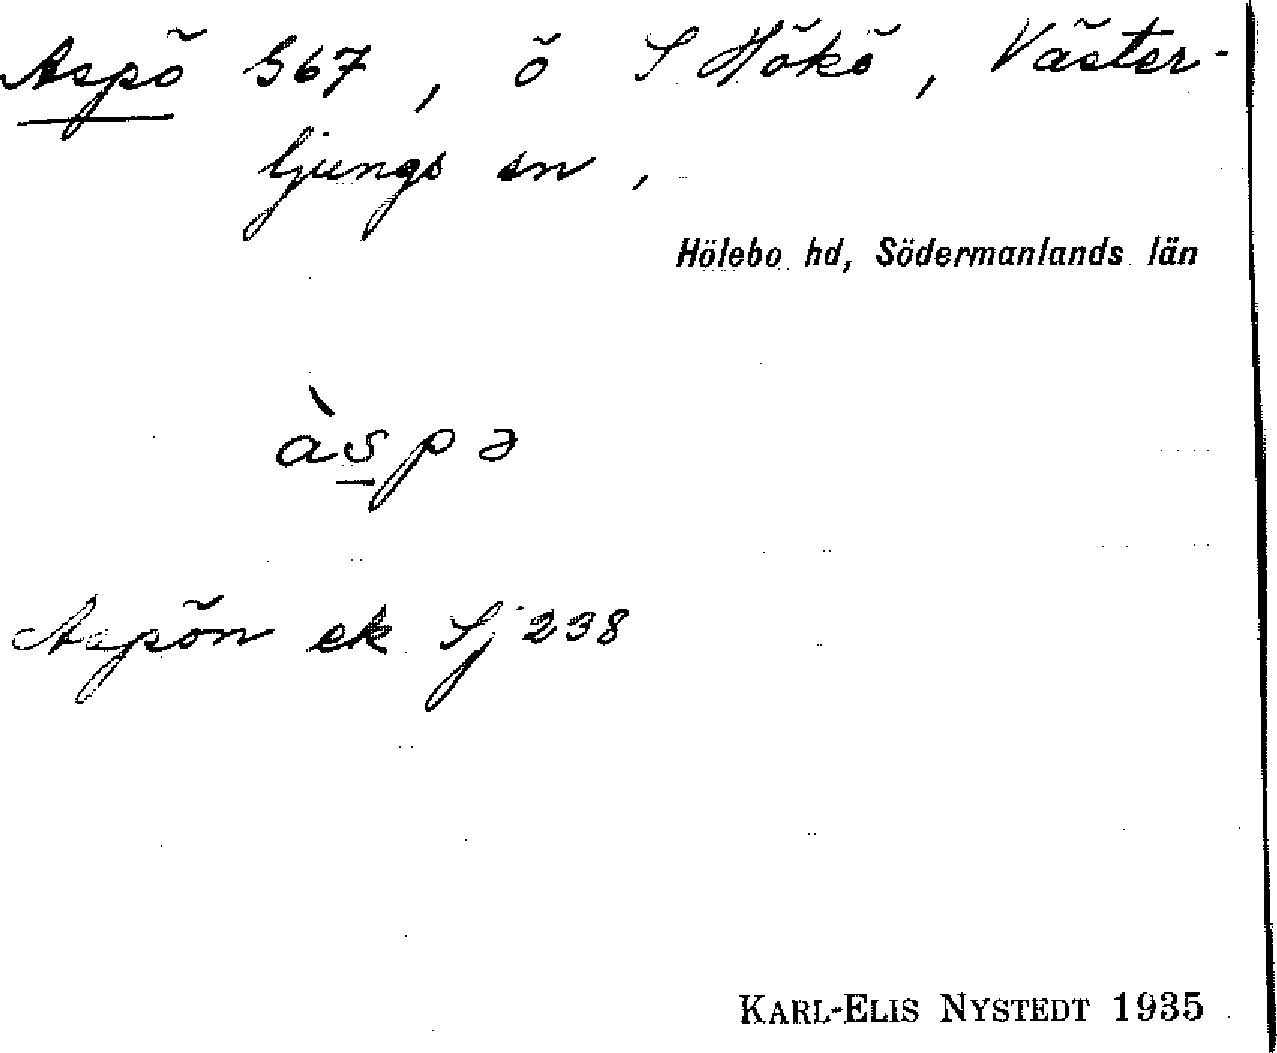 Aspö 567, ö S Hökö, Väster-
ljungs sn,
Hölebo hd, Södermanlands län
àspə
Aspön ek Sj 238
KARL-ELIS NYSTEDT 1935